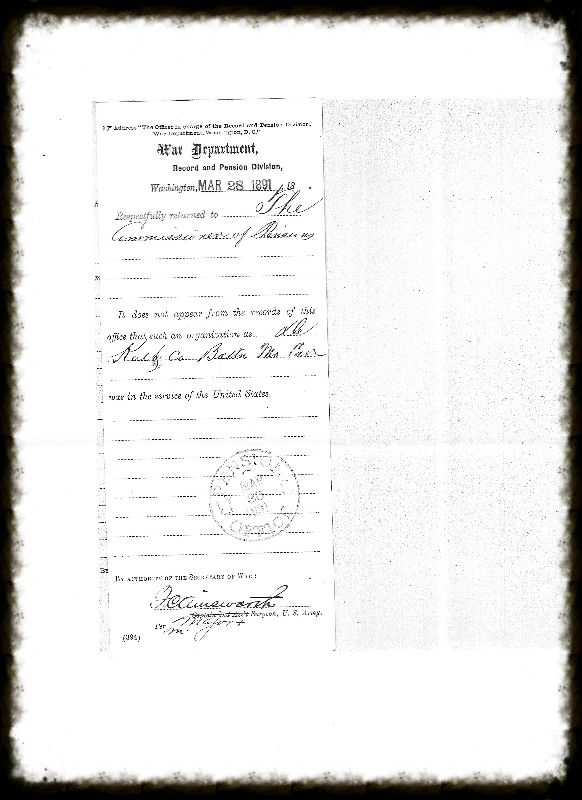 ☞ Address "The Officer in charge of the Record and Pension Division,
War Department, Washington, D. C."
War Department,
Record and Pension Division,
Washington, MAR 28 1891, 18 .
Respectfully returned to The
Commissioner of Pensions
It does not appear from the records of this
office that such an organization as
Co Battn Mo
was in the service of the United States.
PENSION
MAR
28
1891
OFFICE
BY AUTHORITY OF THE SECRETARY OF WAR:
F C Ainsworth
Captain and Ass't Surgeon, U. S. Army.
Major +
Per m.
(394)